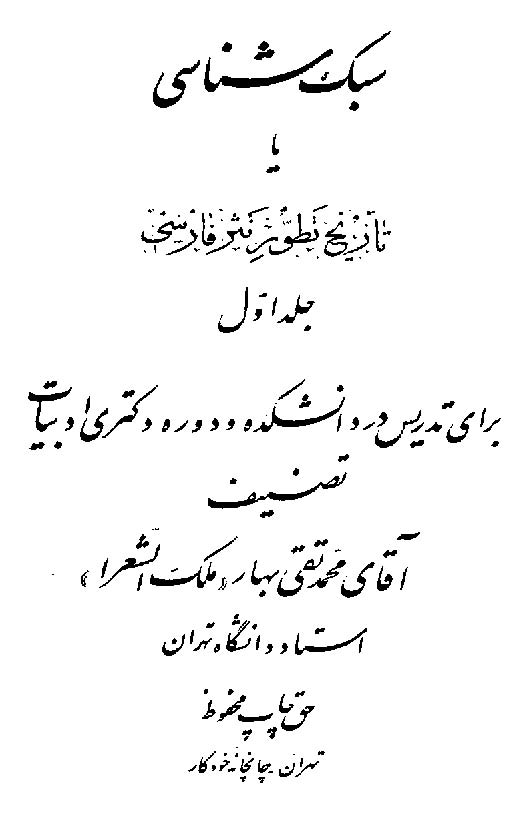 سبک شناسی
یا
تاریخ تطوّر نثر فارسی
جلد اوّل
برای تدریس در دانشکده و دوره دکتری ادبیات
تصنیف
آقای محمّد تقی بهار «ملک الشّعرا»
استاد دانشگاه تهران
حق چاپ محفوظ
تهران - چاپخانهٔ خودکار